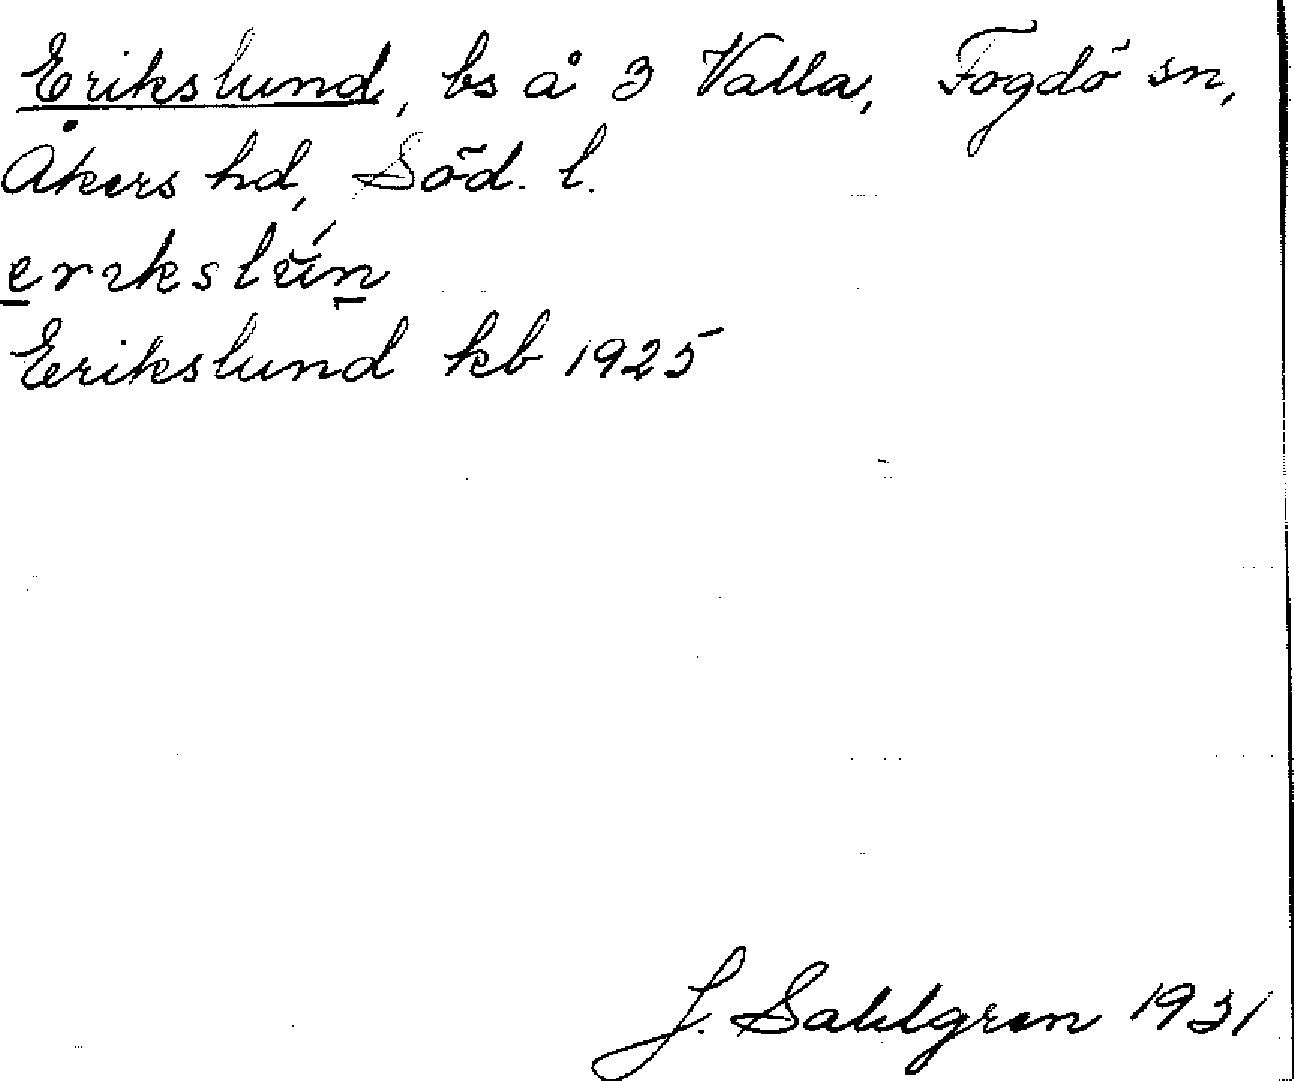 Erikslund, bs å 3 Valla, Fogdö sn,
Åkers hd, Söd. l.
erikslún
Erikslund kb 1925
J. Sahlgren 1931